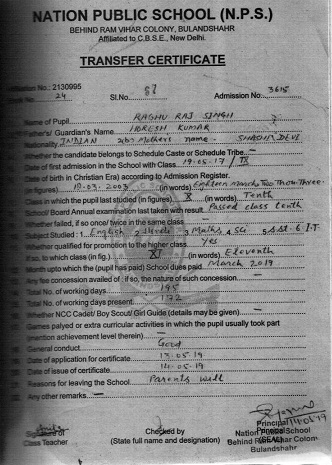 NATION PUBLIC SCHOOL (N.P.S.)
BEHIND RAM VIHAR COLONY, BULANDSHAHR
Affiliated to C.B.S.E., New Delhi.
TRANSFER CERTIFICATE
No.: 2130995
24 Sl.No. Admission No.: 3615
Name of Pupil RAGHU RAJ SINGH
Father's/ Guardian's Name HORESH KUMAR
Nationality INDIAN Mothers name - SHASHI DEVI
Whether the candidate belongs to Schedule Caste or Schedule Tribe -
Date of first admission in the School with Class 19.05.17 / IX
Date of birth in Christian Era) according to Admission Register.
(in figures) 18.03.2003 (in words) Eighteen March Two Thou Three.
Class in which the pupil last studied (in figures) X (in words) Tenth
School/ Board Annual examination last taken with result Passed class tenth
Whether failed, if so once/ twice in the same class
Subject Studied : 1 English 2 Hindi 3 Maths 4 Sci 5 SSt 6 I.T
Whether qualified for promotion to the higher class. Yes
If so, to which class (in fig.) XI (in words) Eleventh
Month upto which the (pupil has paid) School dues paid March 2019
Any fee concession availed of : if so, the nature of such concession. —
Total No. of working days 195
Total No. of working days present 172
Whether NCC Cadet/ Boy Scout/ Girl Guide (details may be given) —
Games palyed or extra curricular activities in which the pupil usually took part
(mention achievement level therein) —
General conduct Good
Date of application for certificate 13.05.19
Date of issue of certificate 14.05.19
Reasons for leaving the School Parents will
Any other remarks. —
Signature of Class Teacher
Checked by
(State full name and designation)
Principal
Nation Public School
(SEAL)
Bulandshahr